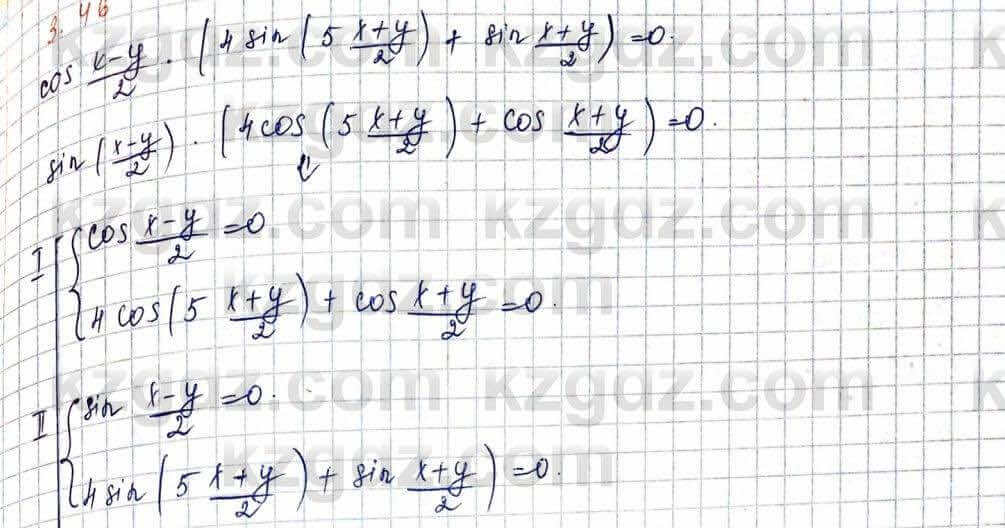 3.46
cos (x-y)/2 · (4 sin (5 (x+y)/2) + sin (x+y)/2) = 0.
sin ((x-y)/2) · (4 cos (5 (x+y)/2) + cos (x+y)/2) = 0.
⇓
I { cos (x-y)/2 = 0
4 cos (5 (x+y)/2) + cos (x+y)/2 = 0.
II { sin (x-y)/2 = 0.
4 sin (5 (x+y)/2) + sin (x+y)/2 = 0.
kzgdz.com kzgdz.com
kzgdz.com kzgdz.com
kzgdz.com kzgdz.com
kzgdz.com
kzgdz.com kzgdz.com
kzgdz.com